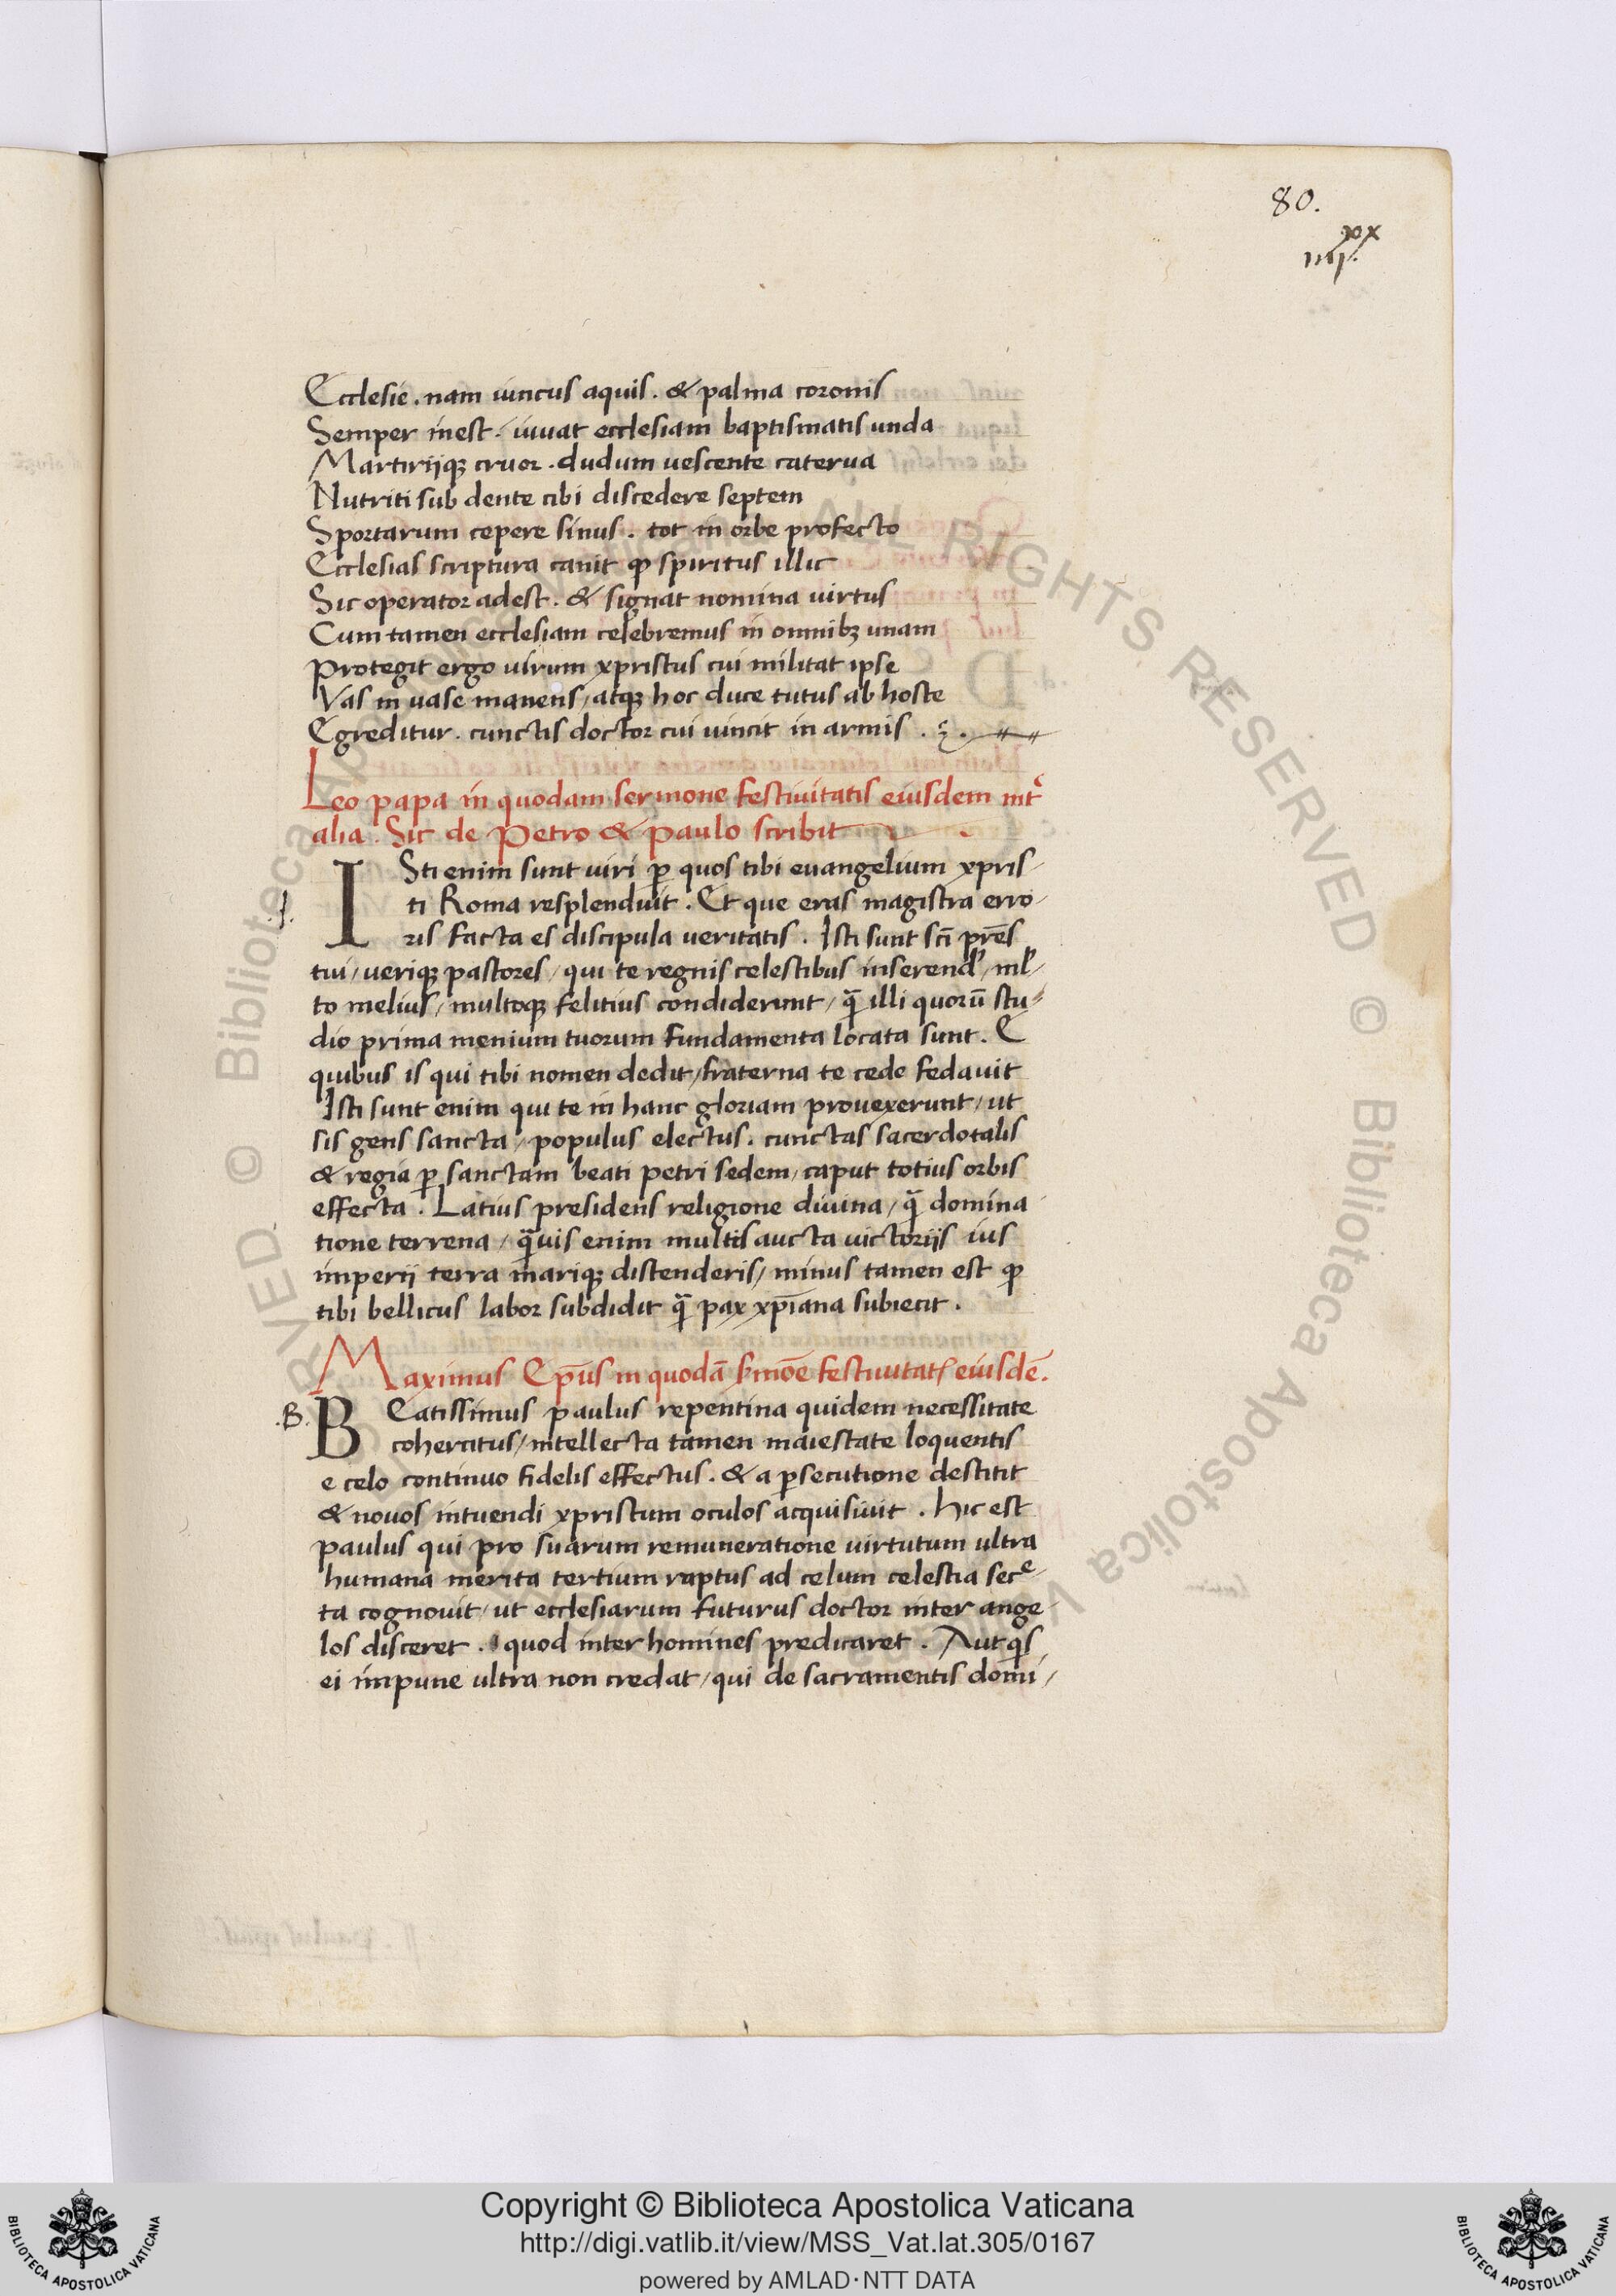 80.
xx
iiij.
Ecclesie . nam iuncus aquis . & palma coronis
Semper inest . iuuat ecclesiam baptismatis unda
Martirijq; cruor . dudum uescente caterua
Nutriti sub dente cibi discedere septem
Sportarum cepere sinus . tot in orbe profecto
Ecclesias scriptura canit ꝙ spiritus illic
Sic operator adest . & signat nomina uirtus
Cum tamen ecclesiam celebremus in omnibꝫ unam
Protegit ergo uirum xpristus cui militat ipse
Vas in uase manens / atqꝫ hoc duce tutus ab hoste
Egreditur . cunctis doctor cui uincit in armis .
Leo papa in quodam sermone festiuitatis eiusdem int̾
alia . Sic de Petro & Paulo scribit
.I.
ISti enim sunt uiri ꝑ quos tibi euangelium xpris-
ti Roma resplenduit . Et que eras magistra erro-
ris facta es discipula ueritatis . Isti sunt sc̄i pr̄es
tui / ueriqꝫ pastores / qui te regnis celestibus inserend' / ml'-
to melius / multoqꝫ felitius condiderunt / q̄ illi quorū stu-
dio prima menium tuorum fundamenta locata sunt . E
quibus is qui tibi nomen dedit / fraterna te cede fedauit
Isti sunt enim qui te in hanc gloriam prouexerunt / ut
sis gens sancta / populus electus . cunctas sacerdotalis
& regia ꝑ sanctam beati petri sedem / caput totius orbis
effecta . Latius presidens religione diuina / q̄ domina
tione terrena / q̄uis enim multis aucta uictorijs ius
imperij terra marique distenderis / minus tamen est ꝙ
tibi bellicus labor subdidit q̄ pax xp̄iana subiecit .
Maximus Ep̄us in quodā s̄moē festiuitatꝭ eiusdē.
.B.
BEatissimus paulus repentina quidem necessitate
cohercitus / intellecta tamen maiestate loquentis
e celo continuo fidelis effectus . & a ꝑsecutione destitit
& nouos intuendi xpristum oculos acquisiuit . Hic est
paulus qui pro suarum remuneratione uirtutum ultra
humana merita tertium raptus ad celum celestia secᵉ-
ta cognouit / ut ecclesiarum futurus doctor inter ange
los disceret . quod inter homines predicaret . Aut q̇s
ei impune ultra non credat / qui de sacramentis domi /
© Biblioteca Apostolica Vaticana ALL RIGHTS RESERVED © Biblioteca Apostolica Vaticana
Copyright © Biblioteca Apostolica Vaticana
http://digi.vatlib.it/view/MSS_Vat.lat.305/0167
powered by AMLAD · NTT DATA
BIBLIOTECA APOSTOLICA VATICANA
BIBLIOTECA APOSTOLICA VATICANA